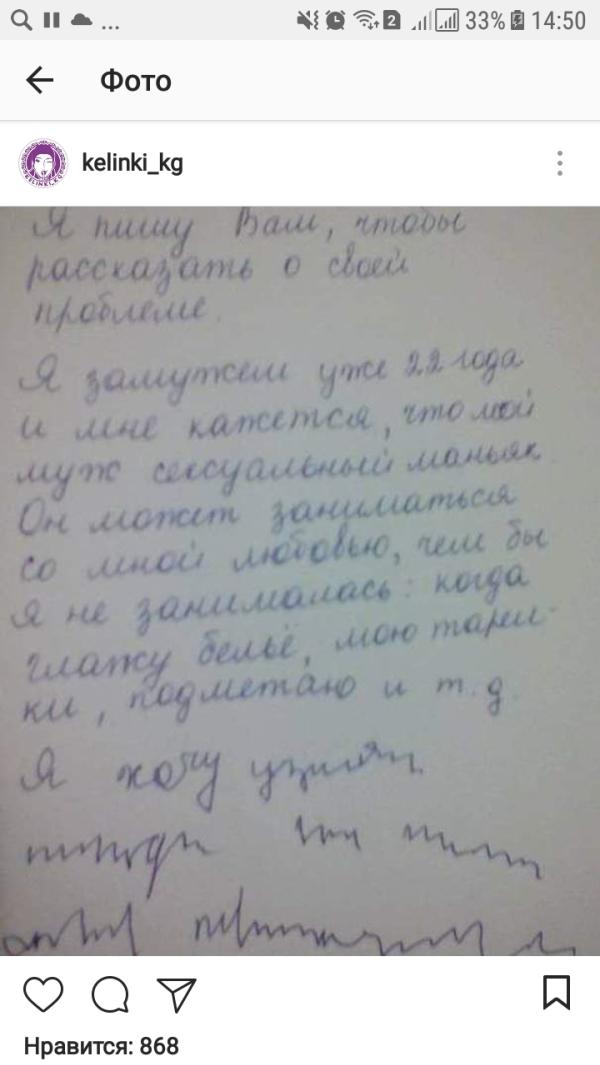 ...
33%
2
14:50
Фото
kelinki_kg
Я пишу Вам, чтобы
рассказать о своей
проблеме.
Я замужем уже 22 года
и мне кажется, что мой
муж сексуальный маньяк.
Он может заниматься
со мной любовью, чем бы
я не занималась: когда
глажу бельё, мою тарел-
ки, подметаю и т.д.
Я хочу
Нравится: 868